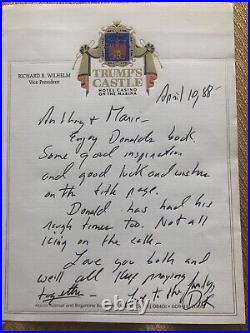 RICHARD R. WILHELM
Vice President
TRUMP'S
CASTLE
HOTEL CASINO
ON THE MARINA
April 10, 88
Anthony + Marie -
Enjoy Donalds book.
Some good inspiration
and good luck and wishes
on the title page.
Donald has had his
rough times too. Not all
icing on the cake -
Love you both and
we'll all keep praying
together - to the family
Dick
Avenue and Brigantine